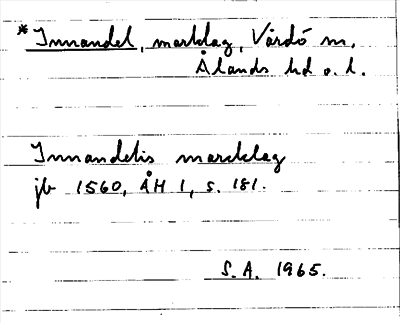 *Innandel, marklag, Vårdö sn,
Ålands hd o. l.
Innandelis marcklag
jb 1560, ÅH 1, s. 181.
S. A. 1965.